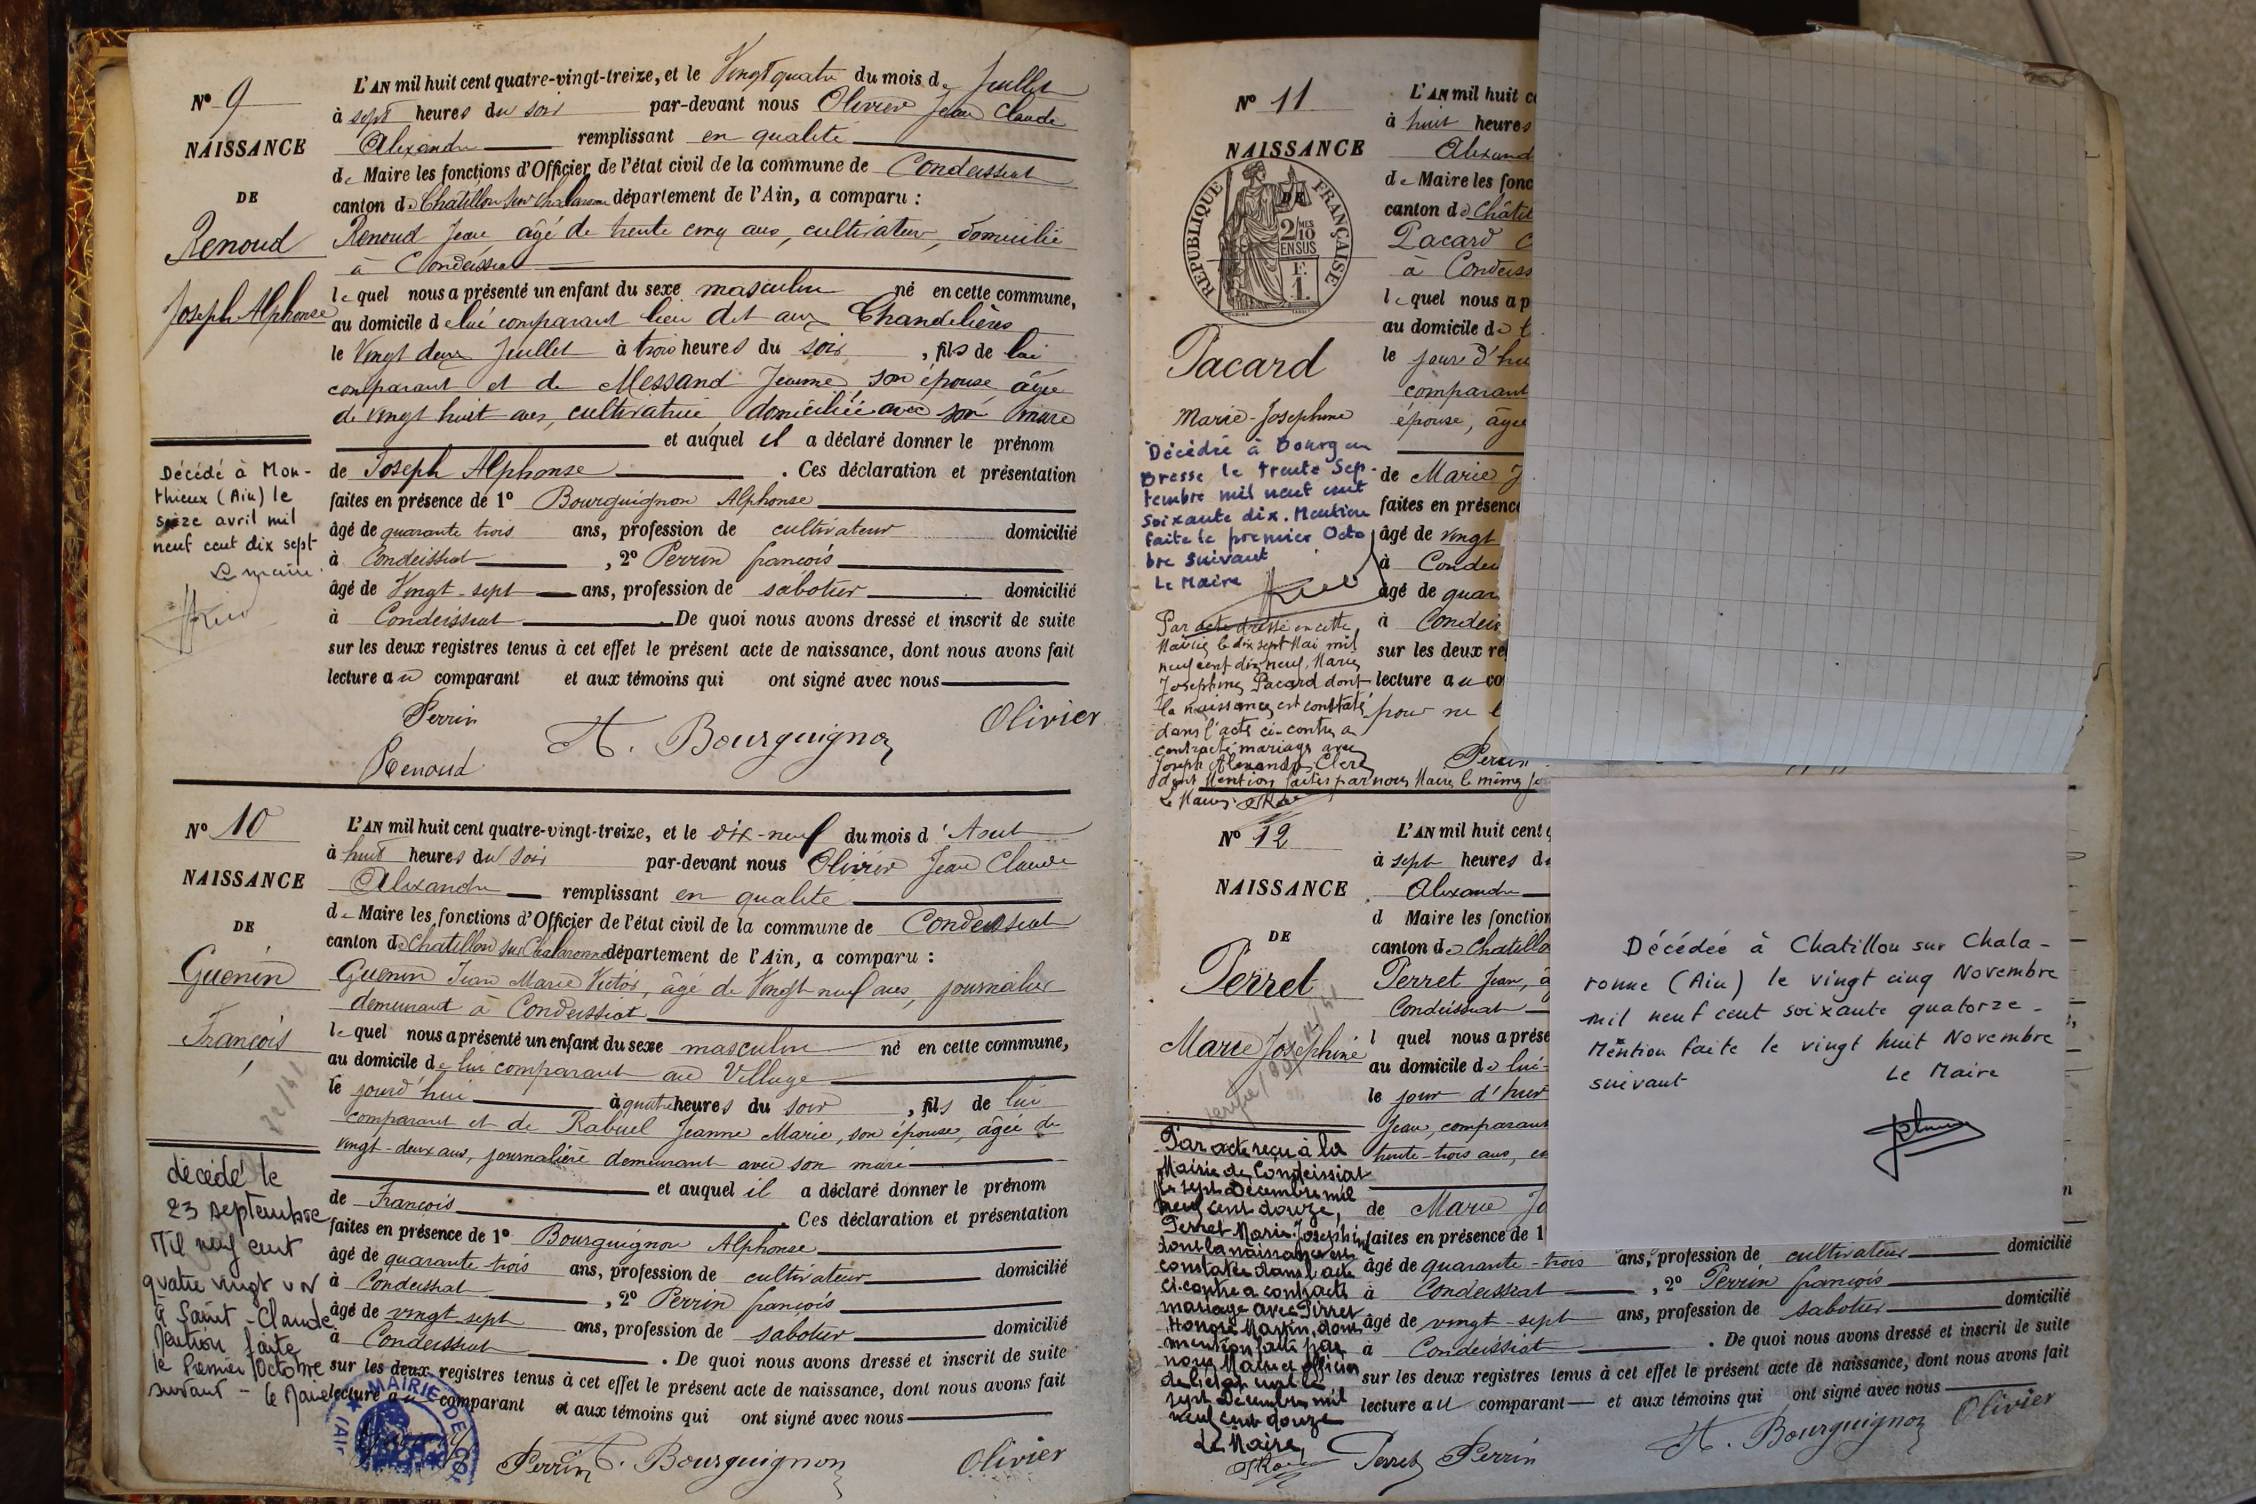 N° 9
NAISSANCE
DE
Renoud
Joseph Alphonse
Décédé à Mon-
thieux (Ain) le
seize avril mil
neuf cent dix sept
Le maire.
L'AN mil huit cent quatre-vingt-treize, et le Vingt quatre du mois de Juillet
à sept heures du soir par-devant nous Olivier Jean Claude
Alexandre remplissant en qualité
de Maire les fonctions d'Officier de l'état civil de la commune de Condeissiat
canton de Chatillon sur Chalaronne département de l'Ain, a comparu :
Renoud Jean, âgé de trente cinq ans, cultivateur, domicilié
à Condeissiat
lequel nous a présenté un enfant du sexe masculin né en cette commune,
au domicile de lui comparant lieu dit aux Chandelières
le Vingt deux Juillet à trois heures du soir, fils de lui
comparant et de Messand Jeanne, son épouse âgée
de vingt huit ans, cultivatrice, domiciliée avec son mari
et auquel il a déclaré donner le prénom
de Joseph Alphonse. Ces déclaration et présentation
faites en présence de 1° Bourguignon Alphonse
âgé de quarante trois ans, profession de cultivateur domicilié
à Condeissiat, 2° Perrin françois
âgé de Vingt-sept ans, profession de sabotier domicilié
à Condeissiat. De quoi nous avons dressé et inscrit de suite
sur les deux registres tenus à cet effet le présent acte de naissance, dont nous avons fait
lecture au comparant et aux témoins qui ont signé avec nous
Perrin A. Bourguignon Olivier
Renoud
N° 10
NAISSANCE
DE
Guenin
François
décédé le
23 septembre
Mil neuf cent
quatre vingt un
à Saint-Claude
Mention faite
le Premier Octobre
suivant - le Maire
L'AN mil huit cent quatre-vingt-treize, et le dix-neuf du mois d'Aout
à huit heures du soir par-devant nous Olivier Jean Claude
Alexandre remplissant en qualité
de Maire les fonctions d'Officier de l'état civil de la commune de Condeissiat
canton de Chatillon sur Chalaronne département de l'Ain, a comparu :
Guenin Jean Marie Victor, âgé de Vingt neuf ans, journalier
demeurant à Condeissiat
lequel nous a présenté un enfant du sexe masculin né en cette commune,
au domicile de lui comparant au Village
le jourd'hui à quatre heures du soir, fils de lui
comparant et de Rabuel Jeanne Marie, son épouse, âgée de
vingt-deux ans, journalière demeurant avec son mari
et auquel il a déclaré donner le prénom
de François. Ces déclaration et présentation
faites en présence de 1° Bourguignon Alphonse
âgé de quarante-trois ans, profession de cultivateur domicilié
à Condeissiat, 2° Perrin françois
âgé de vingt sept ans, profession de sabotier domicilié
à Condeissiat. De quoi nous avons dressé et inscrit de suite
sur les deux registres tenus à cet effet le présent acte de naissance, dont nous avons fait
lecture au comparant et aux témoins qui ont signé avec nous
MAIRIE DE CO
(AIN
Perrin A. Bourguignon Olivier
N° 11
NAISSANCE
DE
REPUBLIQUE FRANÇAISE
2/10 MES
EN SUS
F.
1.
Pacard
Marie-Josephine
Décédée à Bourg en
Bresse le trente Sep-
tembre mil neuf cent
soixante dix. Mention
faite le premier Octo
bre suivant
Le Maire
Par acte dressé en cette
Mairie le dix sept Mai mil
neuf cent dix neuf, Marie
Josephine Pacard dont
la naissance est constatée
dans l'acte ci-contre a
contracté mariage avec
Joseph Alexandre Clerc
dont Mention faite par nous Maire le même jo
Le Maire
L'AN mil huit c
à huit heures
Alexand
de Maire les fonc
canton de Châtil
Pacard C
à Condeiss
lequel nous a p
au domicile de l
le jour d'hu
comparant
épouse, âgée
de Marie J
faites en présence
âgé de vingt
à Condei
âgé de quar
à Condeis
sur les deux re
lecture au co
pour ne l
Perrin
N° 12
NAISSANCE
DE
Perret
Marie Josephine
Par acte reçu à la
Mairie de Condeissiat
le sept Décembre mil
neuf cent douze,
Perret Marie Josephine
dont la naissance est
constatée dans l'acte
ci-contre a contracté
mariage avec Perret
Honoré Martin, dont
mention faite par
nous Maire et officier
de l'état civil le
sept Décembre mil
neuf cent douze
Le Maire,
L'AN mil huit cent q
à sept heures du
Alexandre
d Maire les fonction
canton de Chatillo
Perret Jean, â
Condeissiat
l quel nous a prése
au domicile de lui-
le jour d'hui
Jean, comparant
trente-trois ans, cu
de Marie Jo
faites en présence de 1
âgé de quarante-trois ans, profession de cultivateur domicilié
à Condeissiat, 2° Perrin françois
âgé de vingt-sept ans, profession de sabotier domicilié
à Condeissiat. De quoi nous avons dressé et inscrit de suite
sur les deux registres tenus à cet effet le présent acte de naissance, dont nous avons fait
lecture au comparant et aux témoins qui ont signé avec nous
Perret Perrin A. Bourguignon Olivier
Décédée à Chatillon sur Chala-
ronne (Ain) le vingt cinq Novembre
mil neuf cent soixante quatorze.
Mention faite le vingt huit Novembre
suivant
Le Maire